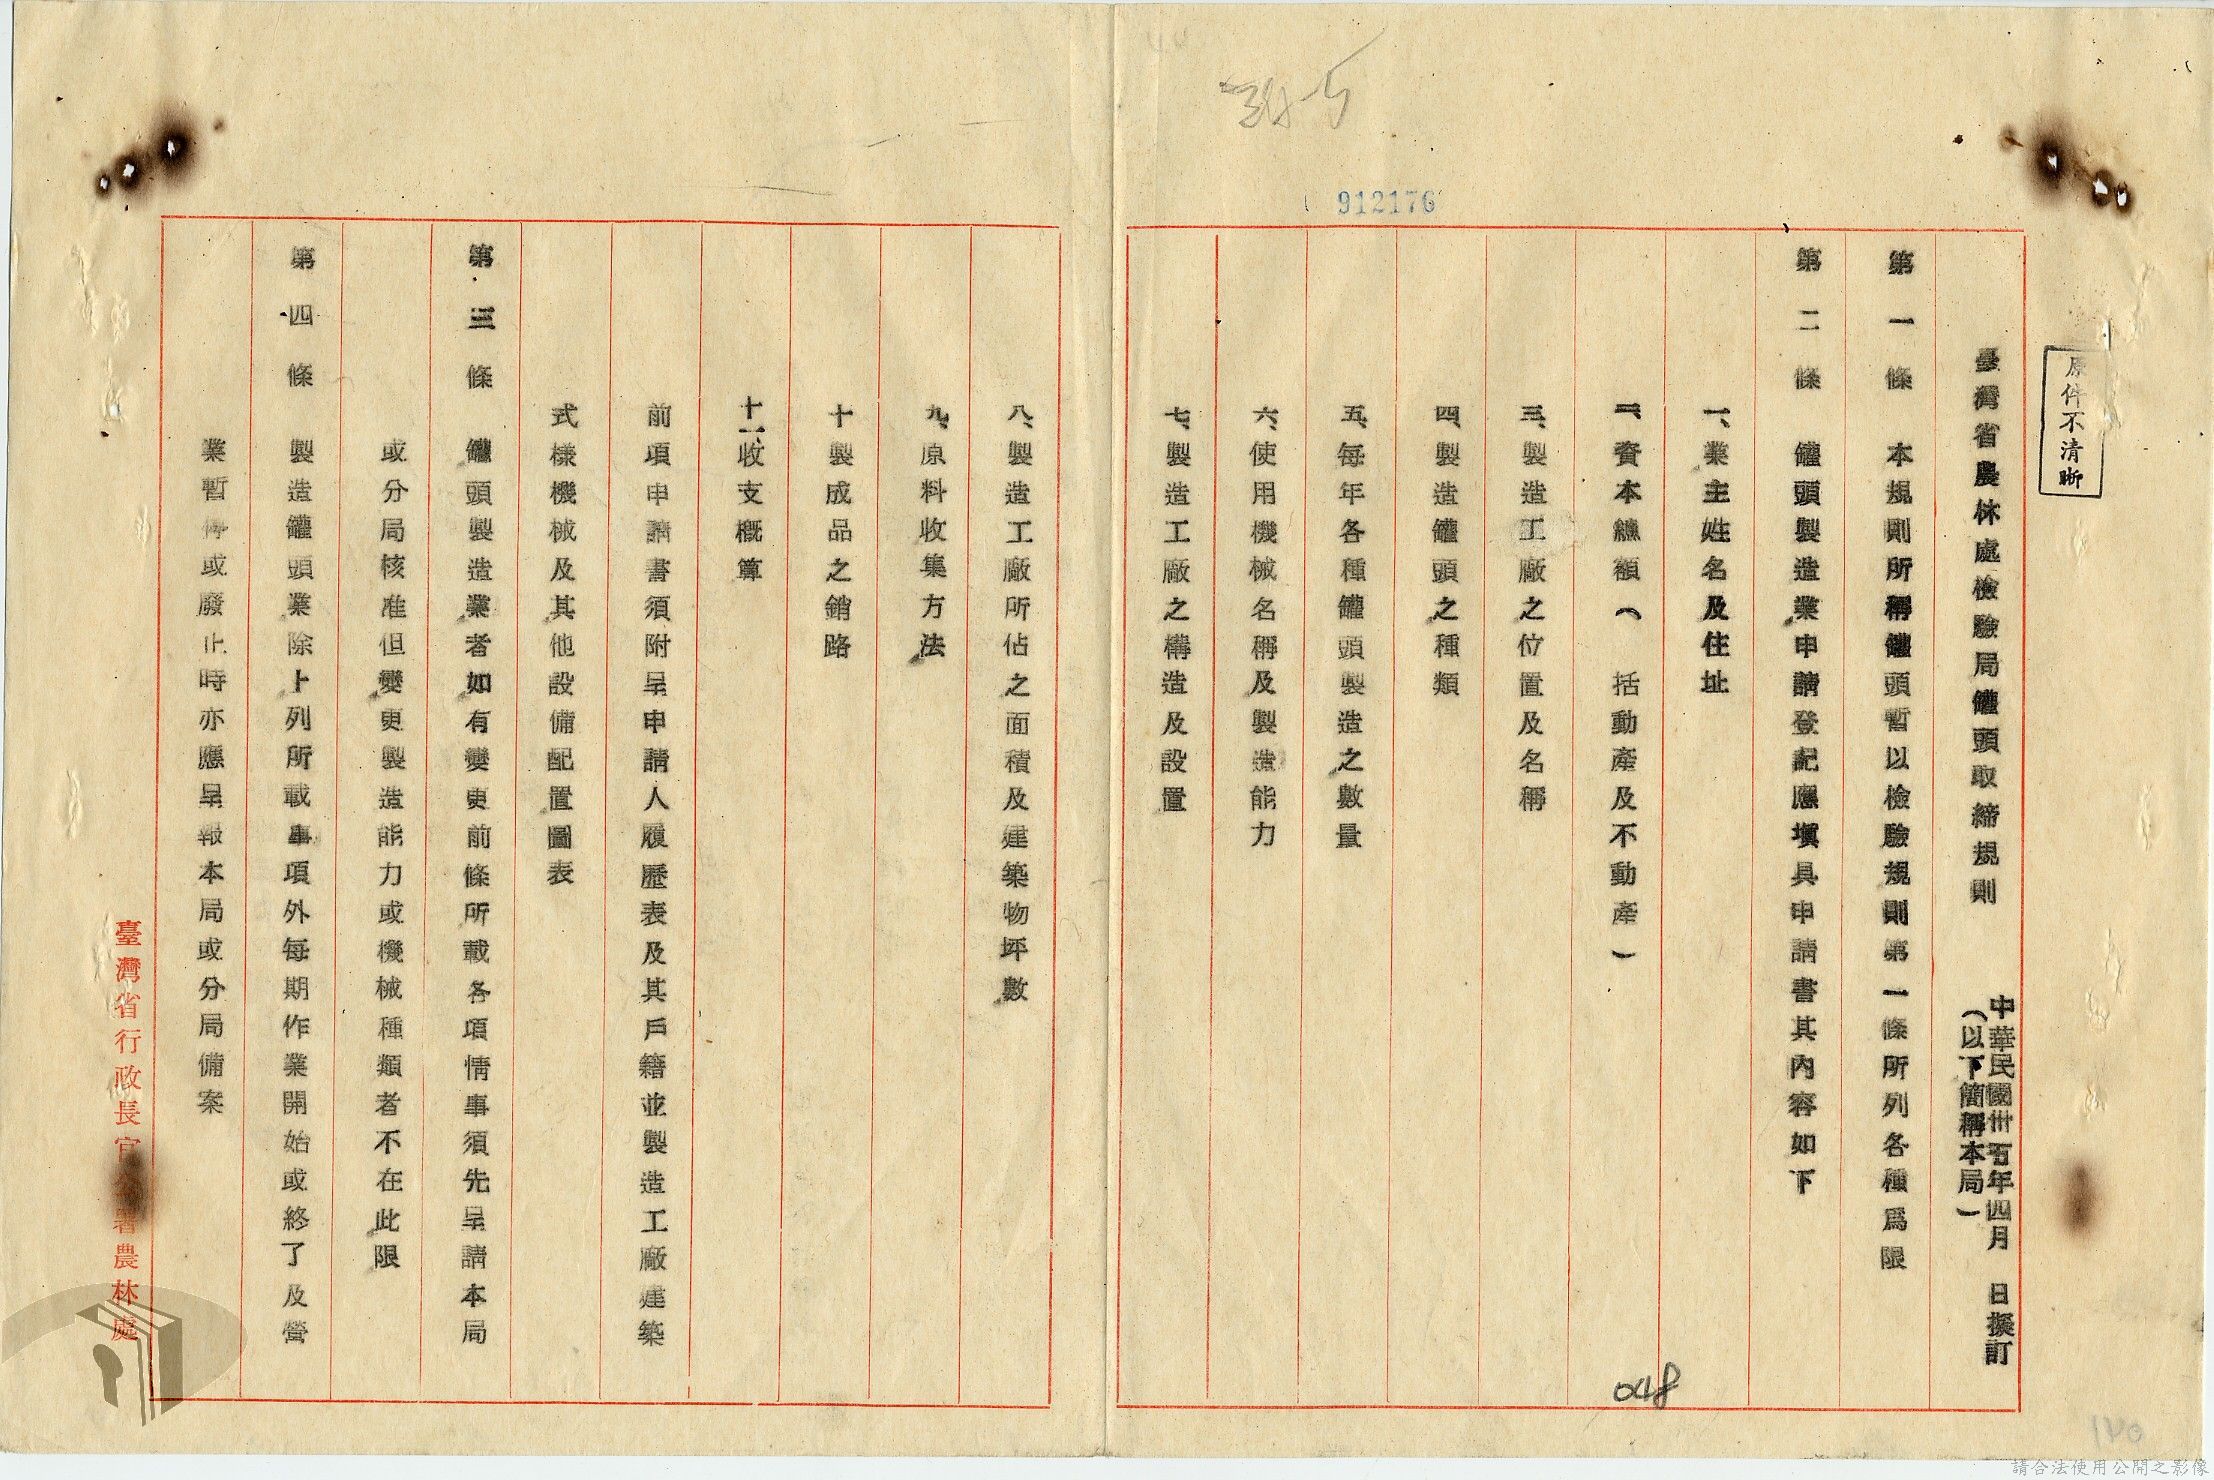 原件不清晰
912176
臺灣省農林處檢驗局罐頭取締規則
中華民國卅五年四月 日擬訂
（以下簡稱本局）
第一條 本規則所稱罐頭暫以檢驗規則第一條所列各種爲限
第二條 罐頭製造業申請登記應塡具申請書其內容如下
一、業主姓名及住址
二、資本總額（ 括動產及不動產）
三、製造工廠之位置及名稱
四、製造罐頭之種類
五、每年各種罐頭製造之數量
六、使用機械名稱及製造能力
七、製造工廠之構造及設置
八、製造工廠所佔之面積及建築物坪數
九、原料收集方法
十製成品之銷路
十一、收支概算
前項申請書須附呈申請人履歷表及其戶籍並製造工廠建築
式樣機械及其他設備配置圖表
第三條 罐頭製造業者如有變更前條所載各項情事須先呈請本局
或分局核准但變更製造能力或機械種類者不在此限
第四條 製造罐頭業除上列所載事項外每期作業開始或終了及營
業暫停或廢止時亦應呈報本局或分局備案
臺灣省行政長官公署農林處
048
140
請合法使用公開之影像